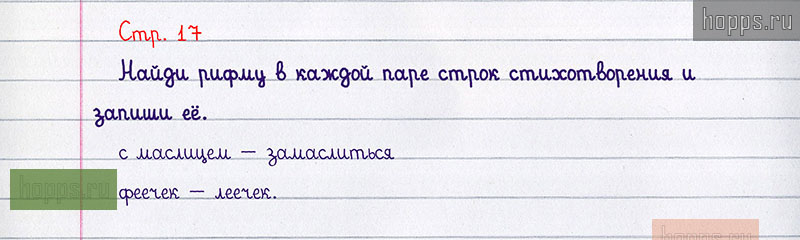 hopps.ru
Стр. 17
Найди рифму в каждой паре строк стихотворения и
запиши её.
с маслицем – замаслиться
hopps.ru
феечек – леечек.
hopps.ru